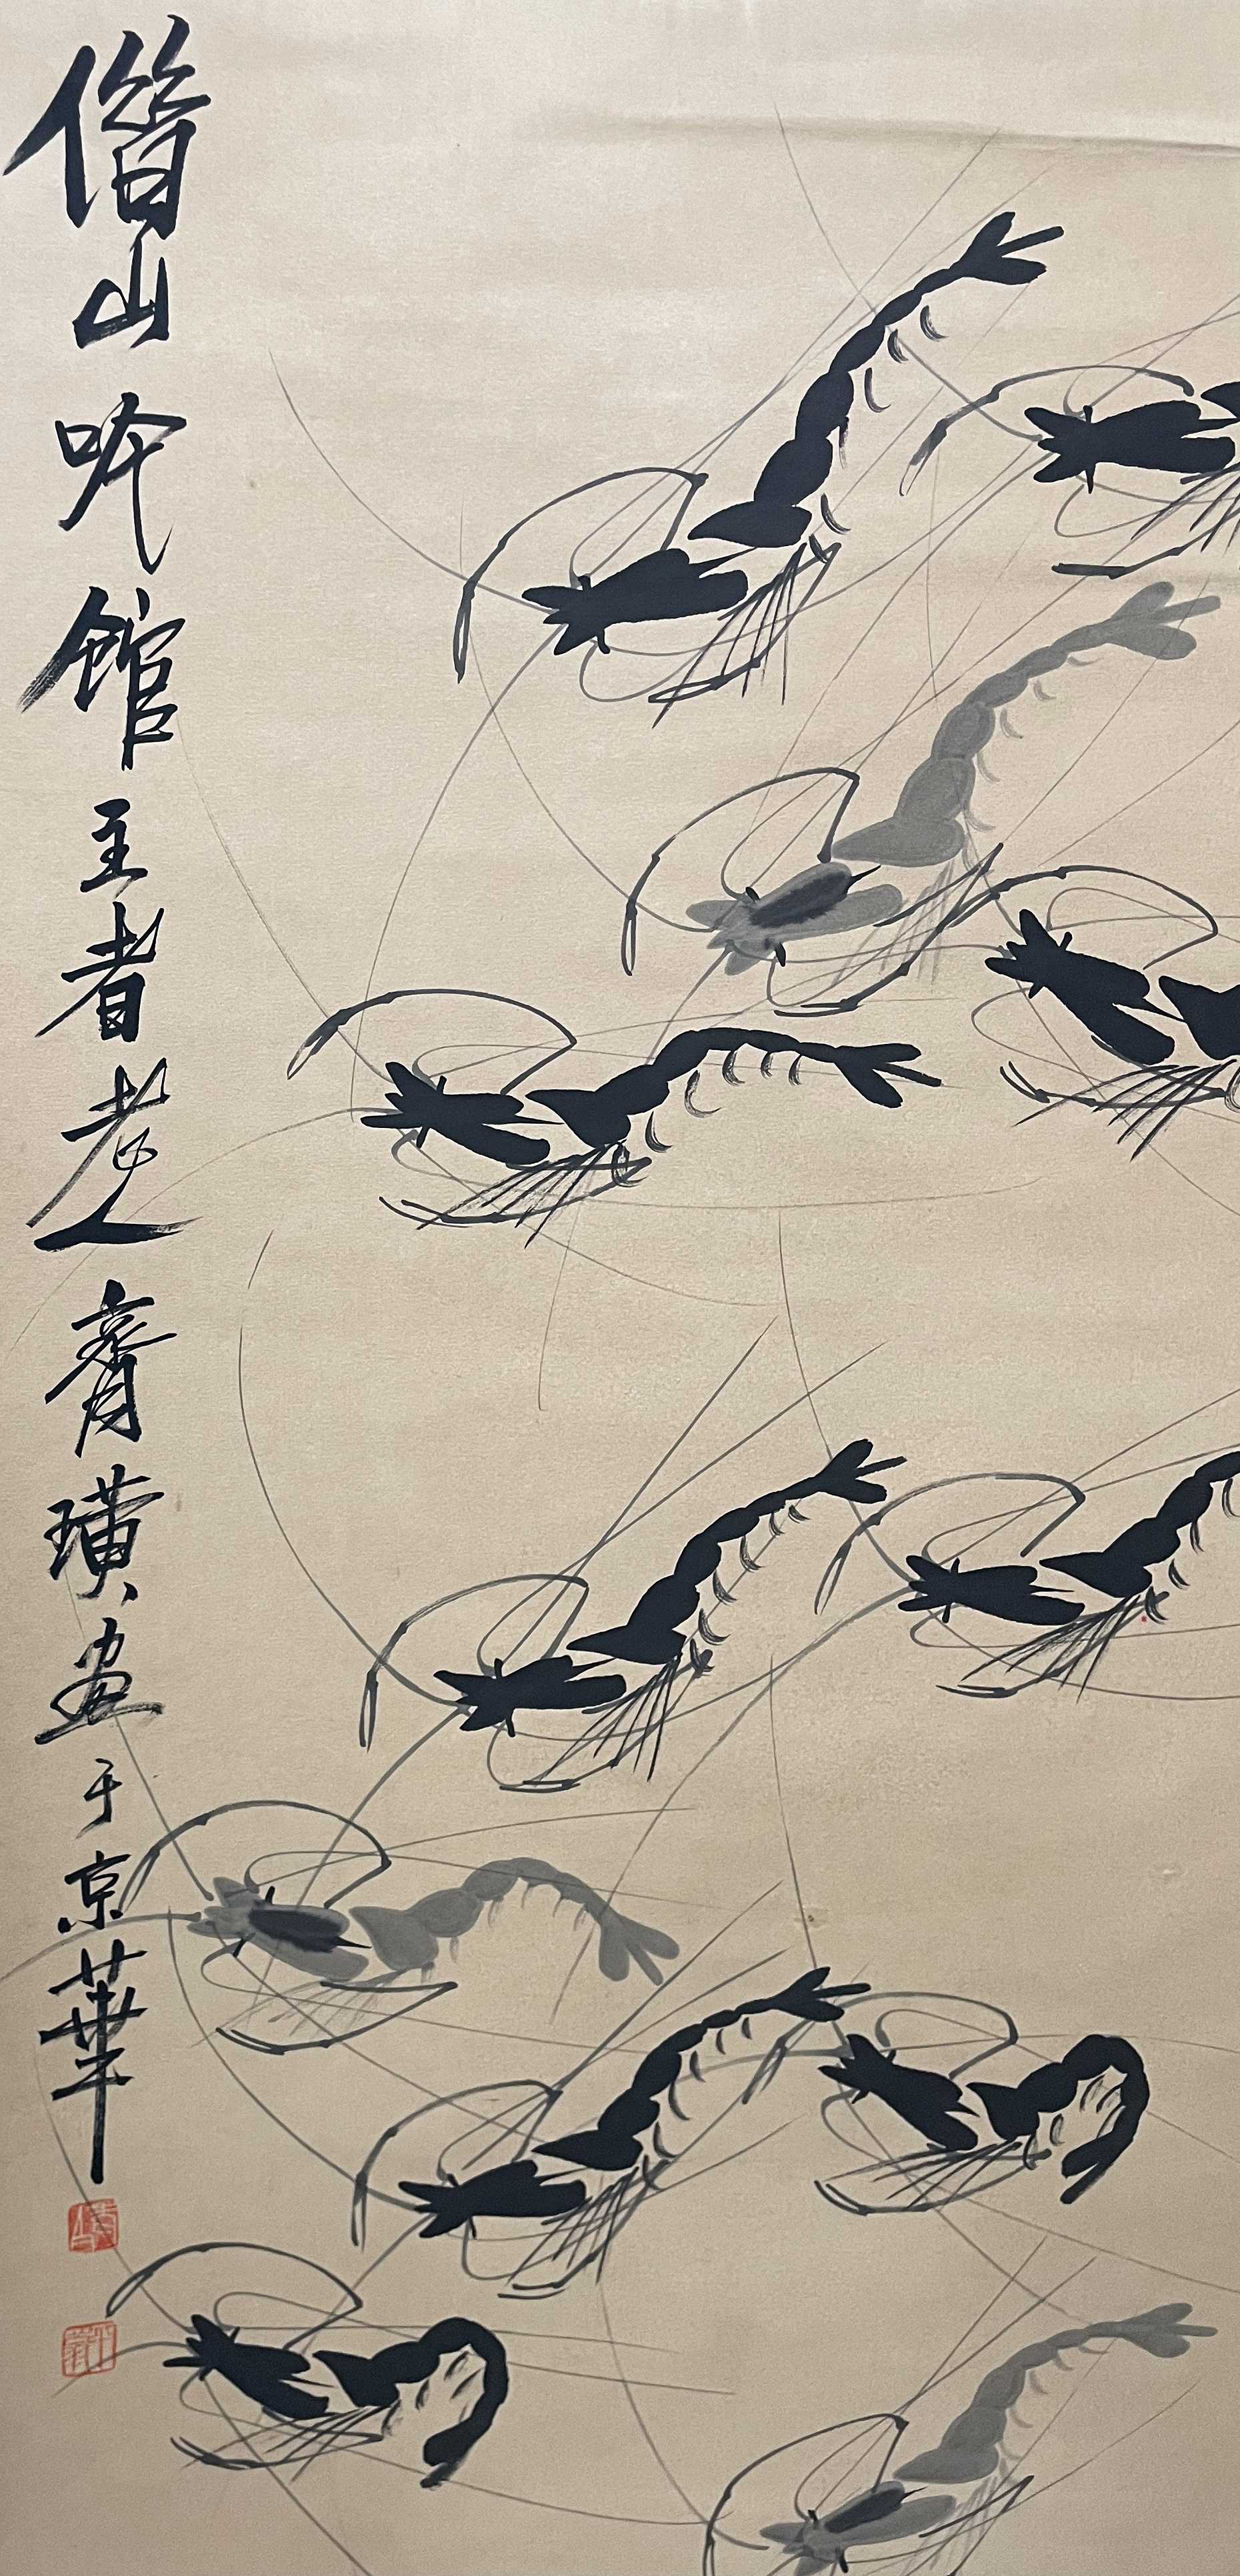 借山吟館主者老人齊璜畫于京華